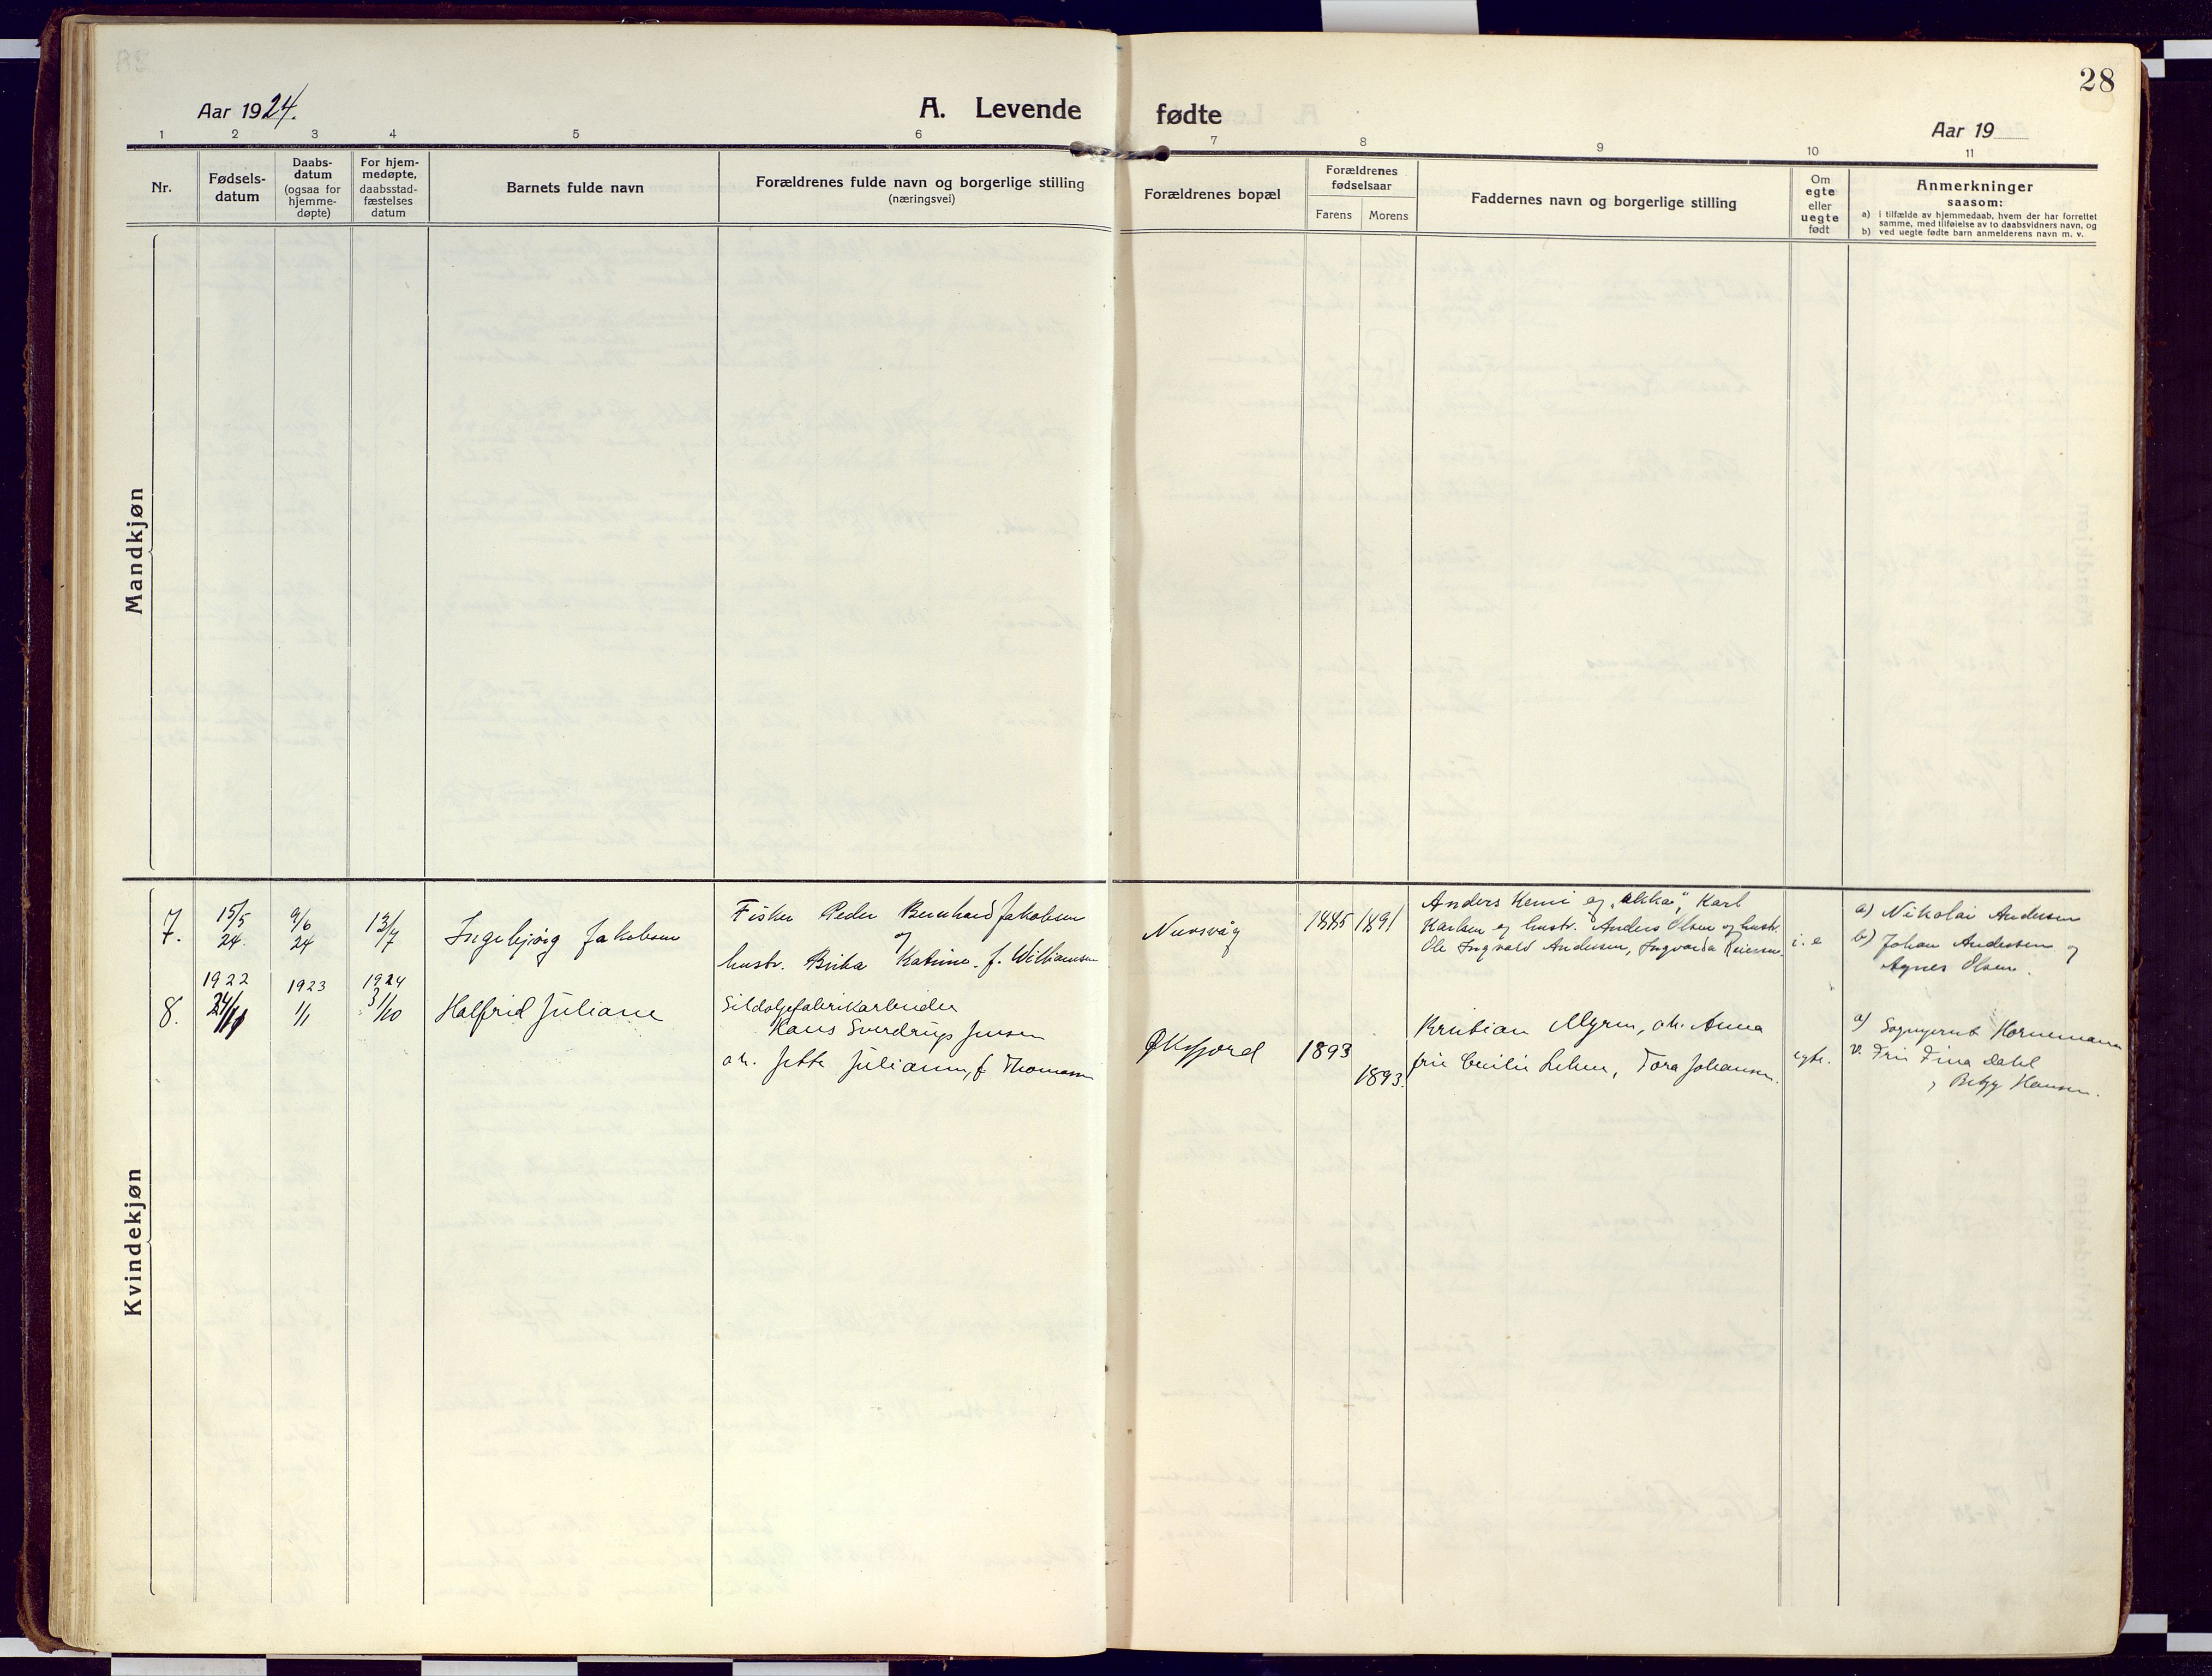 28
Aar 1924.
A. Levende fødte
Aar 19
1 2 3 4 5 6 7 8 9 10 11
Nr.
Fødsels-
datum
Daabs-
datum
(ogsaa for
hjemme-
døpte)
For hjem-
medøpte,
daabsstad-
fæstelses
datum
Barnets fulde navn
Forældrenes fulde navn og borgerlige stilling
(næringsvei)
Forældrenes bopæl
Forældrenes
fødselsaar
Farens Morens
Faddernes navn og borgerlige stilling
Om
egte
eller
uegte
født
Anmerkninger
saasom:
a) i tilfælde av hjemmedaab, hvem der har forrettet
samme, med tilføielse av to daabsvidners navn, og
b) ved uegte fødte barn anmelderens navn m. v.
Mandkjøn
Kvindekjøn
7.
15/5
24.
9/6
24
13/7
Ingebjørg Jakobsen
Fisker Peder Bernhard Jakobsen
og
hustr. Brita Katrine f. Williamsen
Nuvsvåg
1885 1891
Anders Kemi og "akka", Karl
Karlsen og hustr. Anders Olsen og hustr.
Ole Ingvald Andersen, Ingvarda
i. e
a) Nikolai Andersen
b) Johan Andersen og
Agnes Olsen.
8.
1922
24/11
1923
1/1
1924
3/10
Halfrid Juliane
Sildoljefabrikarbeider
Hans Sverdrup Jensen
o.h. Jette Julianne, f. Thomassen
Øksfjord
1893
1893.
Kristian Myren, o.h. Anna
frk Cecilie Lehne, Tora Johansen.
egte.
a) Sogneprest Hornemann
v. Frk Fina Dahl
, Betzy Hansen.